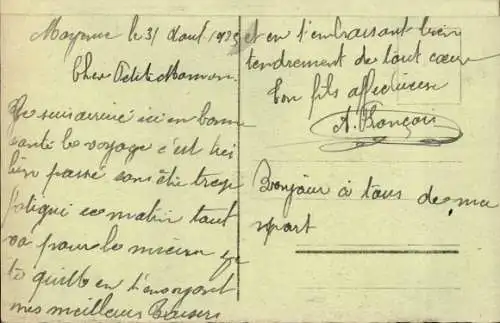 Mayenne le 31 Aout 1925
Cher Petite Maman
Je suis arrivé ici en bonne
santé le voyage c'est très
bien passé sans être trop
fatigué ce matin tout
va pour le mieux je
te quitte en t'envoyant
mes meilleurs Baisers
et en t'embrassant bien
tendrement de tout coeur
Ton fils affectueux
A. François
Bonjour à tous de ma
part